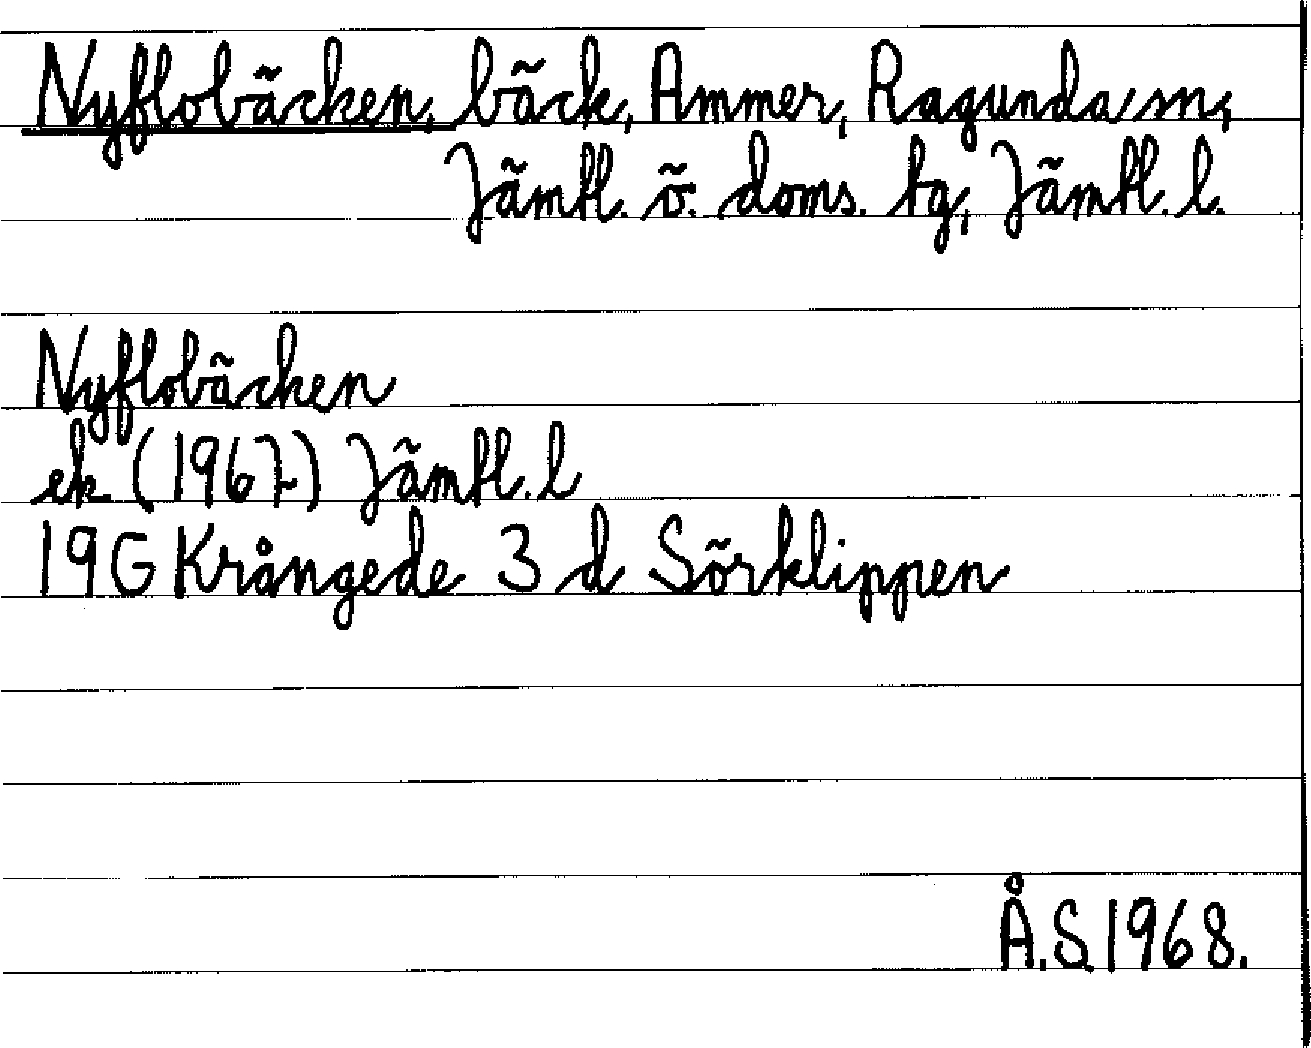 Nyflobäcken, bäck, Ammer, Ragunda sn,
Jämtl. ö. doms. tg, Jämtl. l.
Nyflobäcken
ek (1967) Jämtl. l
19G Krångede 3 d Sörklippen
Å.S.1968.